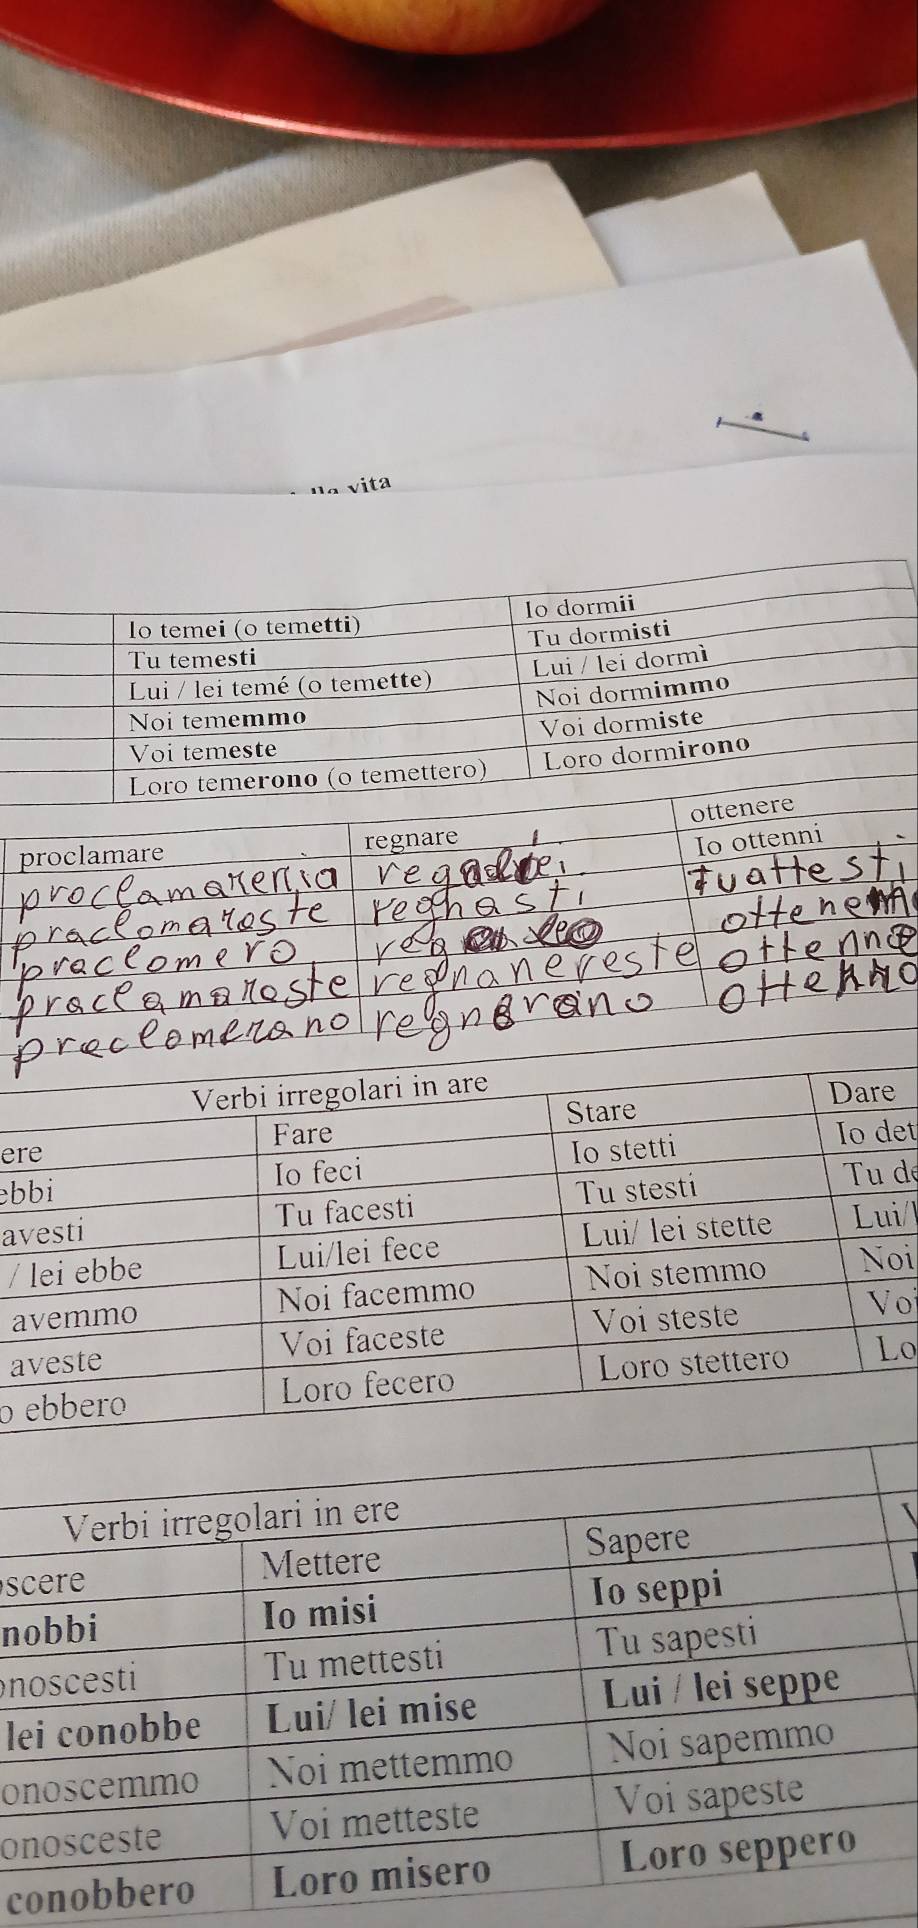 lla vita
Io temei (o temetti) Io dormii
Tu temesti Tu dormisti
Lui / lei temé (o temette) Lui / lei dormì
Noi tememmo Noi dormimmo
Voi temeste Voi dormiste
Loro temerono (o temettero) Loro dormirono
proclamare regnare ottenere
Io ottenni
proclamarenia Tuattesti
praclomaroste reghasti
praclomero ottenne
praclamaroste regnanereste ottenno
preclomerano regnerano
Verbi irregolari in are
ere Fare Stare Dare
ebbi Io feci Io stetti Io det
avesti Tu facesti Tu stesti Tu de
/ lei ebbe Lui/lei fece Lui/ lei stette Lui/l
avemmo Noi facemmo Noi stemmo Noi
aveste Voi faceste Voi steste Voi
o ebbero Loro fecero Loro stettero Lo
Verbi irregolari in ere
oscere Mettere Sapere
nobbi Io misi Io seppi
onoscesti Tu mettesti Tu sapesti
lei conobbe Lui/ lei mise Lui / lei seppe
onoscemmo Noi mettemmo Noi sapemmo
onosceste Voi metteste Voi sapeste
conobbero Loro misero Loro seppero